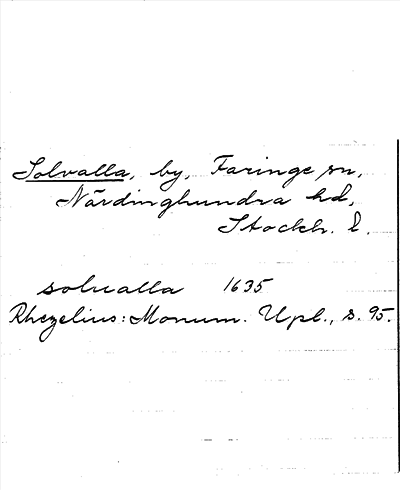 Solvalla, by, Faringe sn,
Närdinghundra hd,
Stockh. l.
solualla 1635
Rhezelius: Monum. Upl., s. 95.